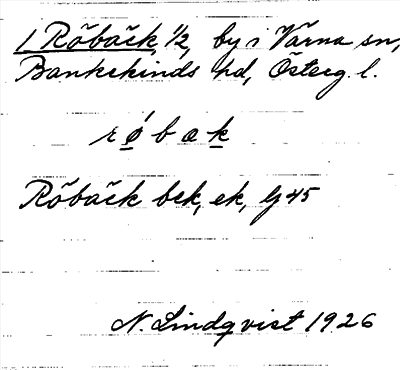 1 Röbäck, 1/2, by i Värna sn,
Bankekinds hd, Österg. l.
røbak
Röbäck bek, ek, G 45
N. Lindqvist 1926